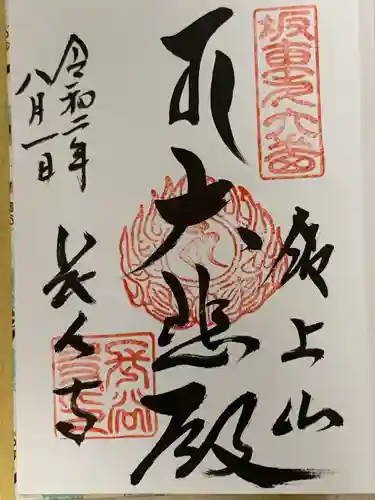 坂東第六番
飯上山
大悲殿
長谷寺
令和二年
八月一日